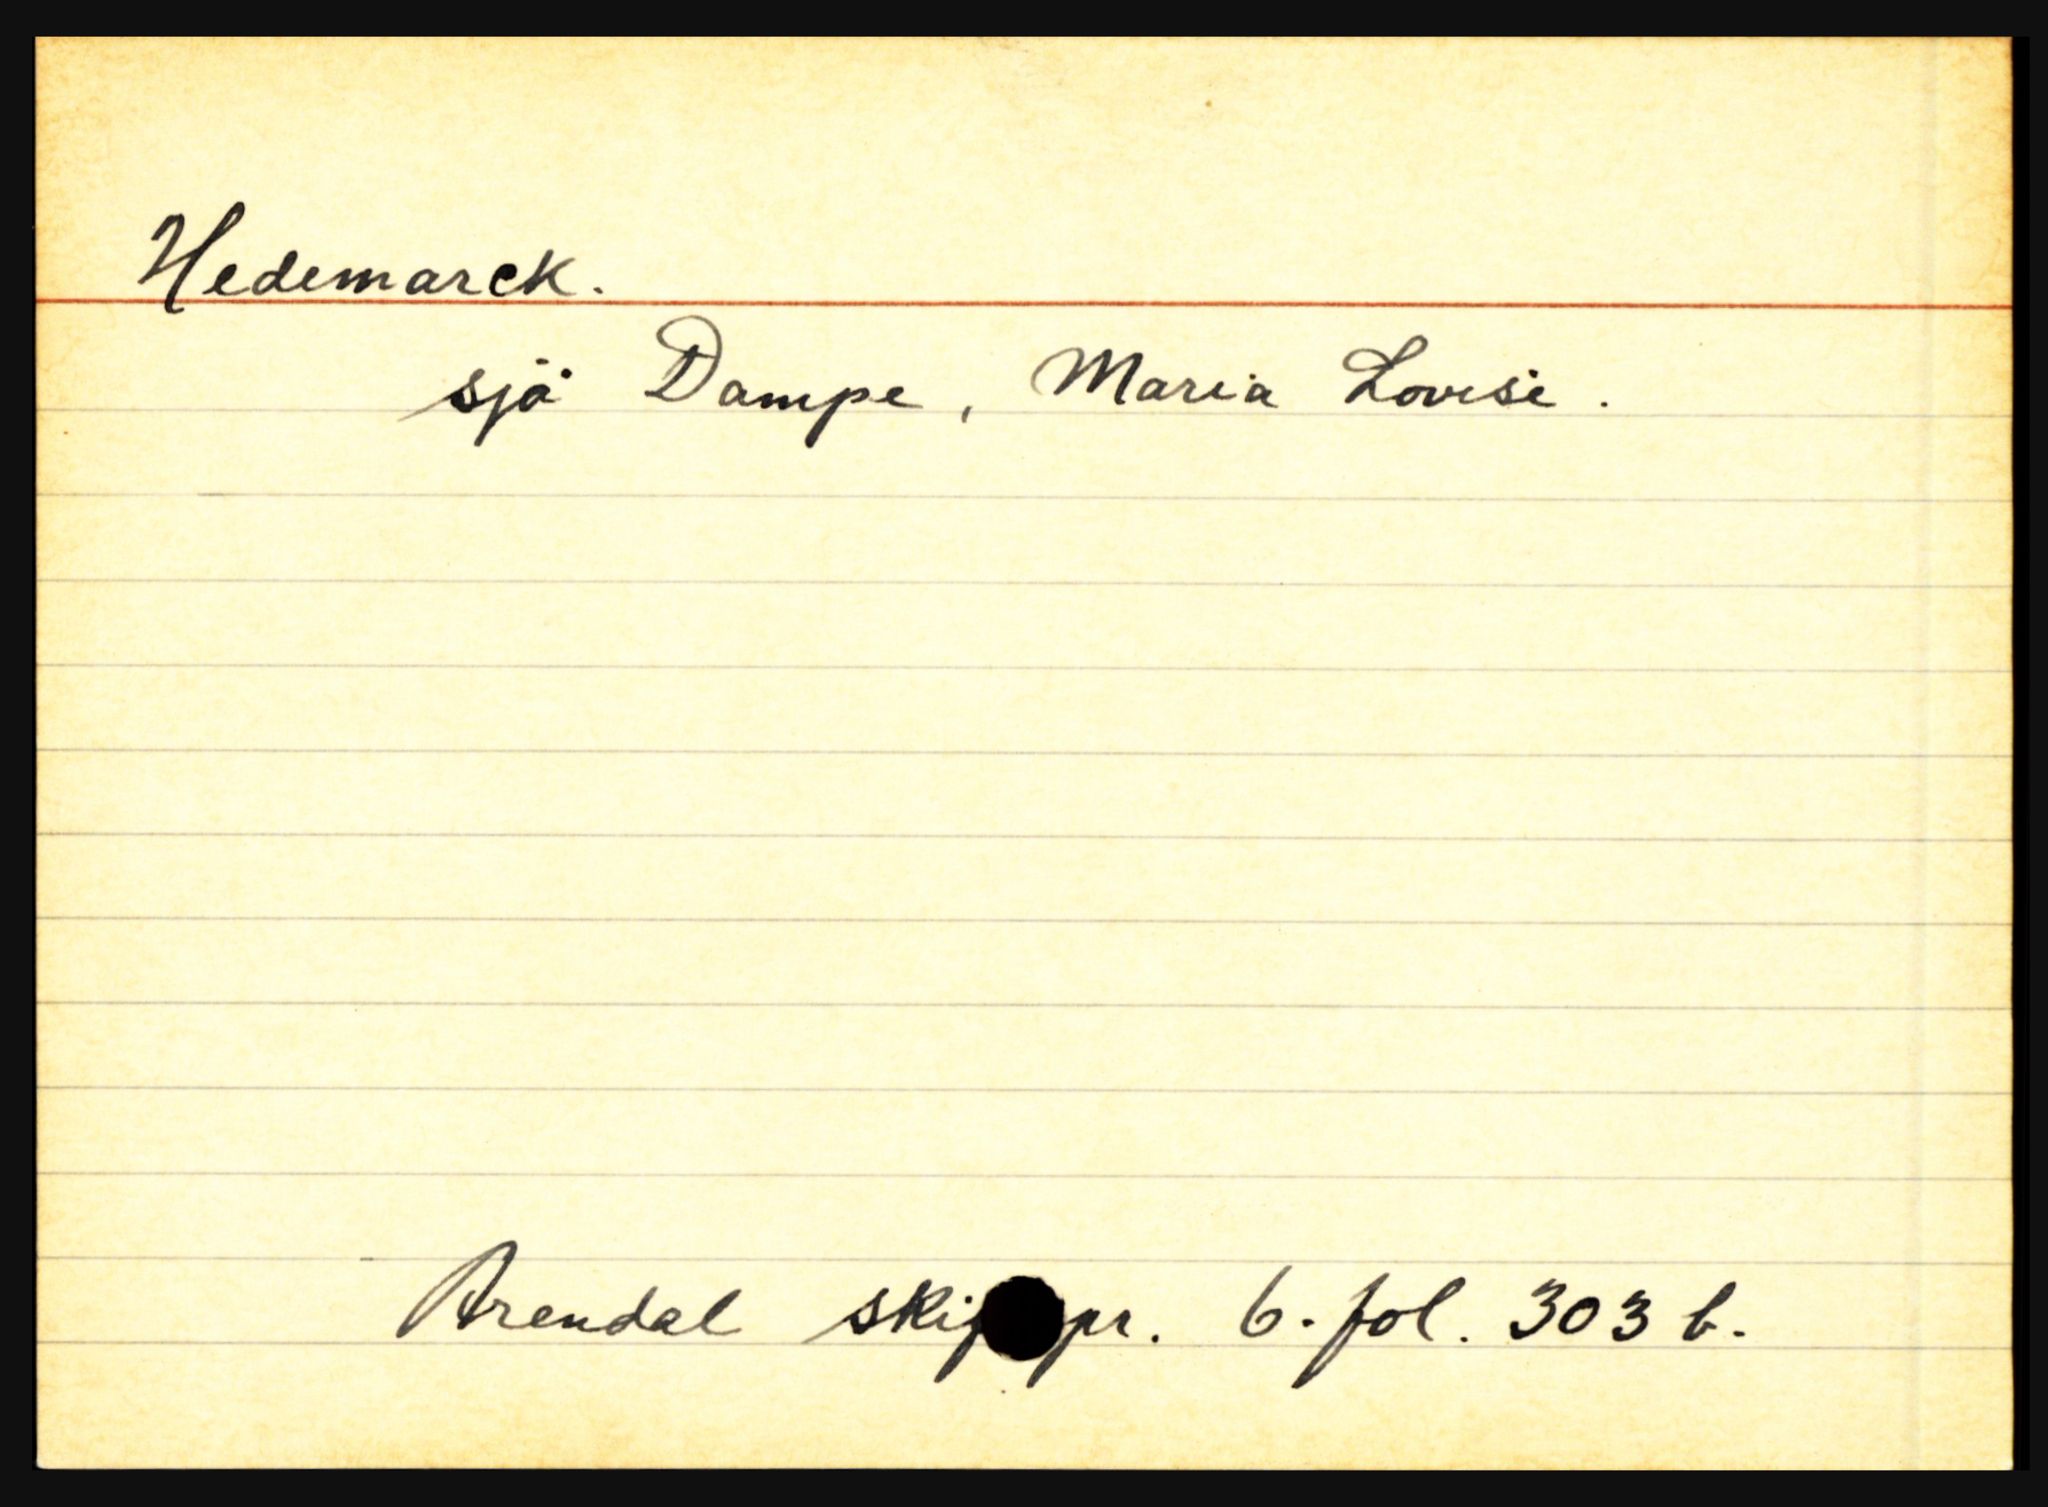 Hedemarck.
sjå Dampe, Maria Lovise.
Arendal skip pr. 6. fol. 303 b.